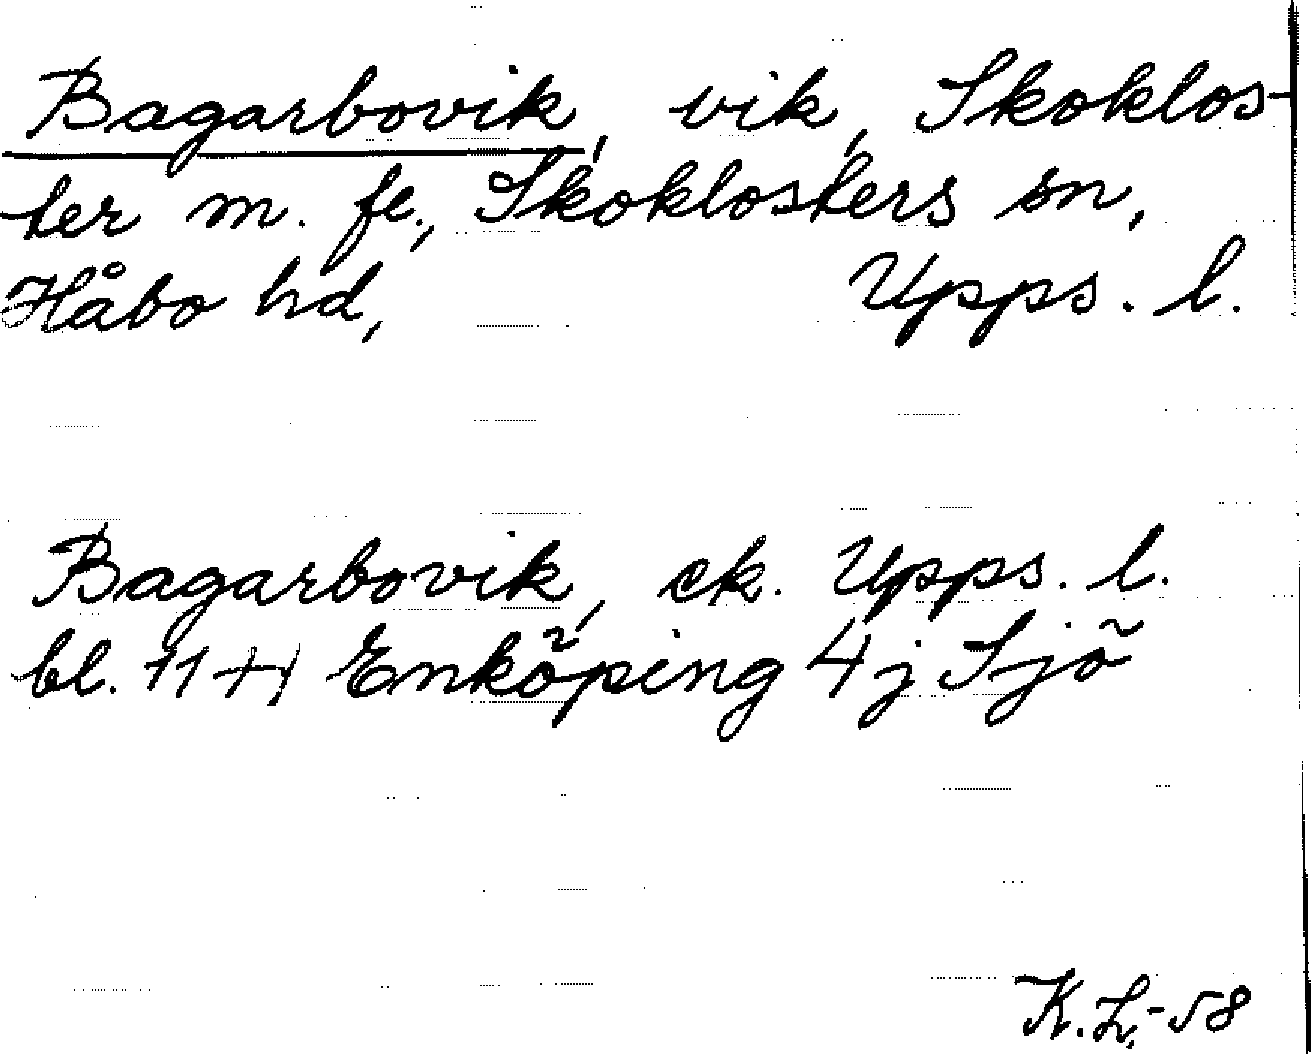 Bagarbovik, vik, Skoklos-
ter m. fl., Skoklosters sn,
Håbo hd, Upps. l.
Bagarbovik, ek. Upps. l.
bl. 11 Enköping 4 j Sjö
K.L.-58